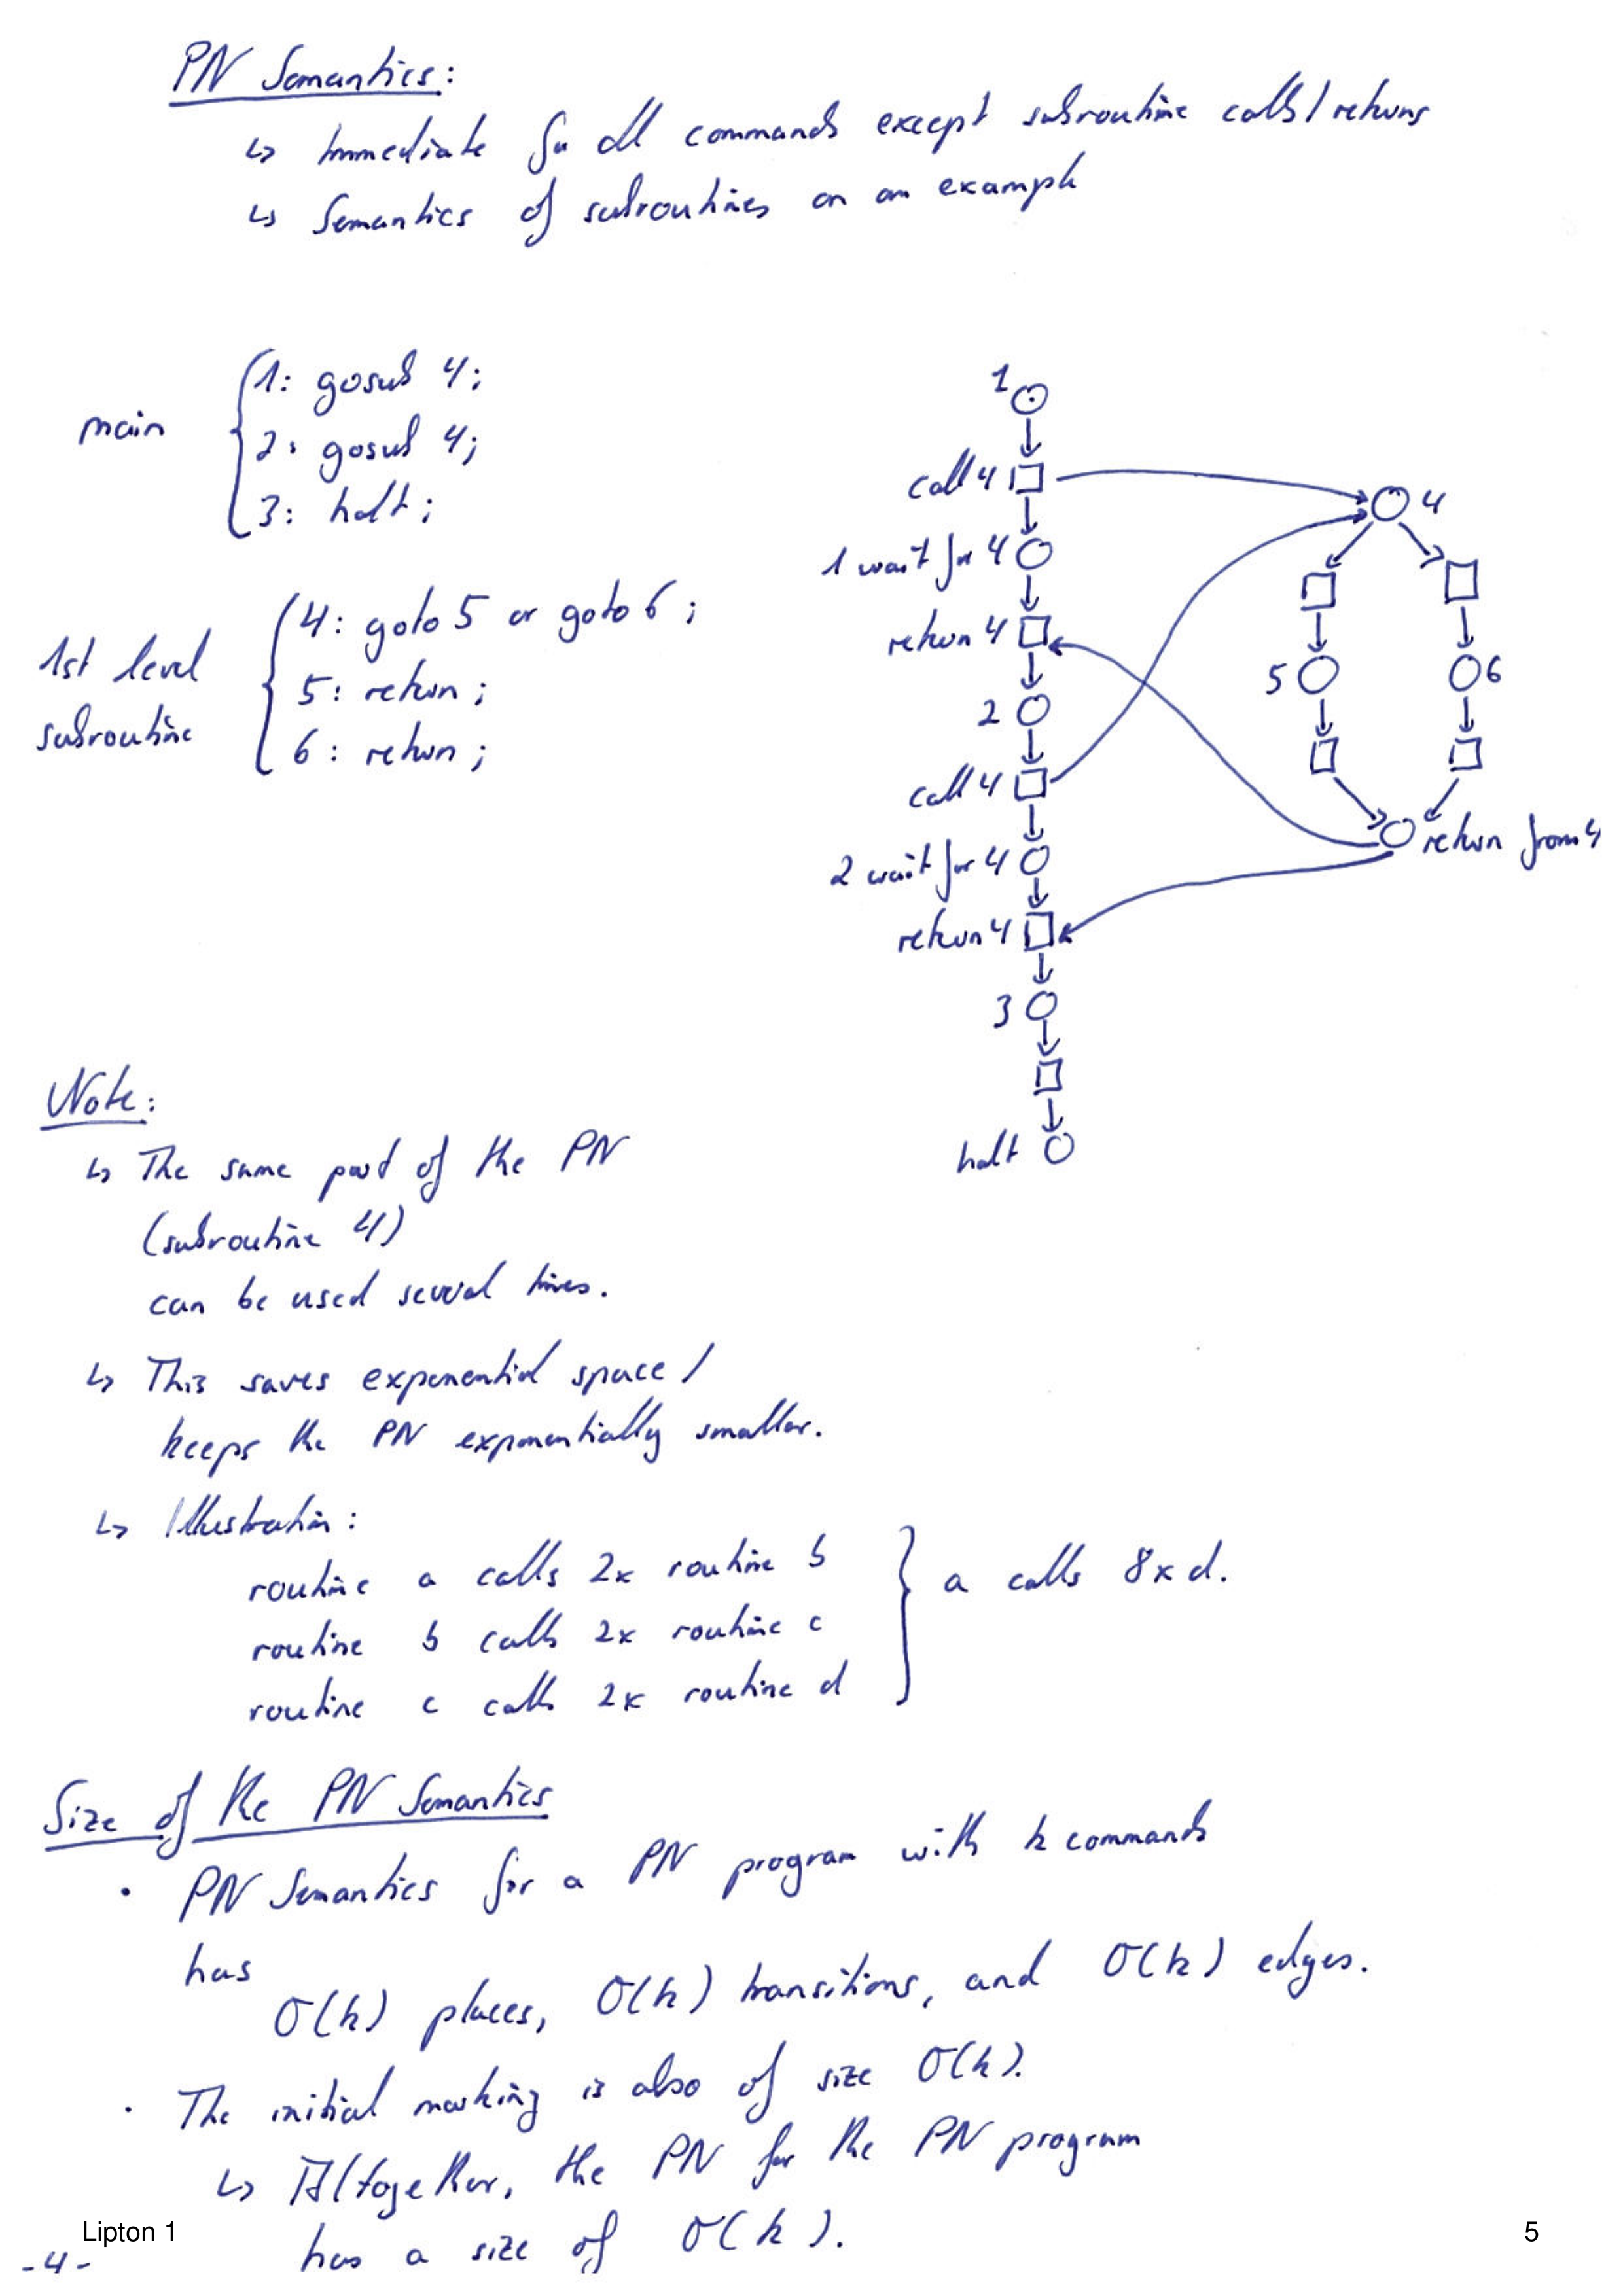 PN Semantics:
↳ Immediate for all commands except subroutine calls/returns
↳ Semantics of subroutines on an example
main
1: gosub 4;
2: gosub 4;
3: halt;
1st level
subroutine
4: goto 5 or goto 6;
5: return;
6: return;
1
call 4
4
1 wait for 4
return 4
5
6
2
call 4
return from 4
2 wait for 4
return 4
3
halt
Note:
↳ The same part of the PN
(subroutine 4)
can be used several times.
↳ This saves exponential space/
keeps the PN exponentially smaller.
↳ Illustration:
routine a calls 2x routine b
routine b calls 2x routine c
routine c calls 2x routine d
a calls 8x d.
Size of the PN Semantics
· PN Semantics for a PN program with k commands
has
O(k) places, O(k) transitions, and O(k) edges.
· The initial marking is also of size O(k).
↳ Altogether, the PN for the PN program
has a size of O(k).
Lipton 1
5
-4-